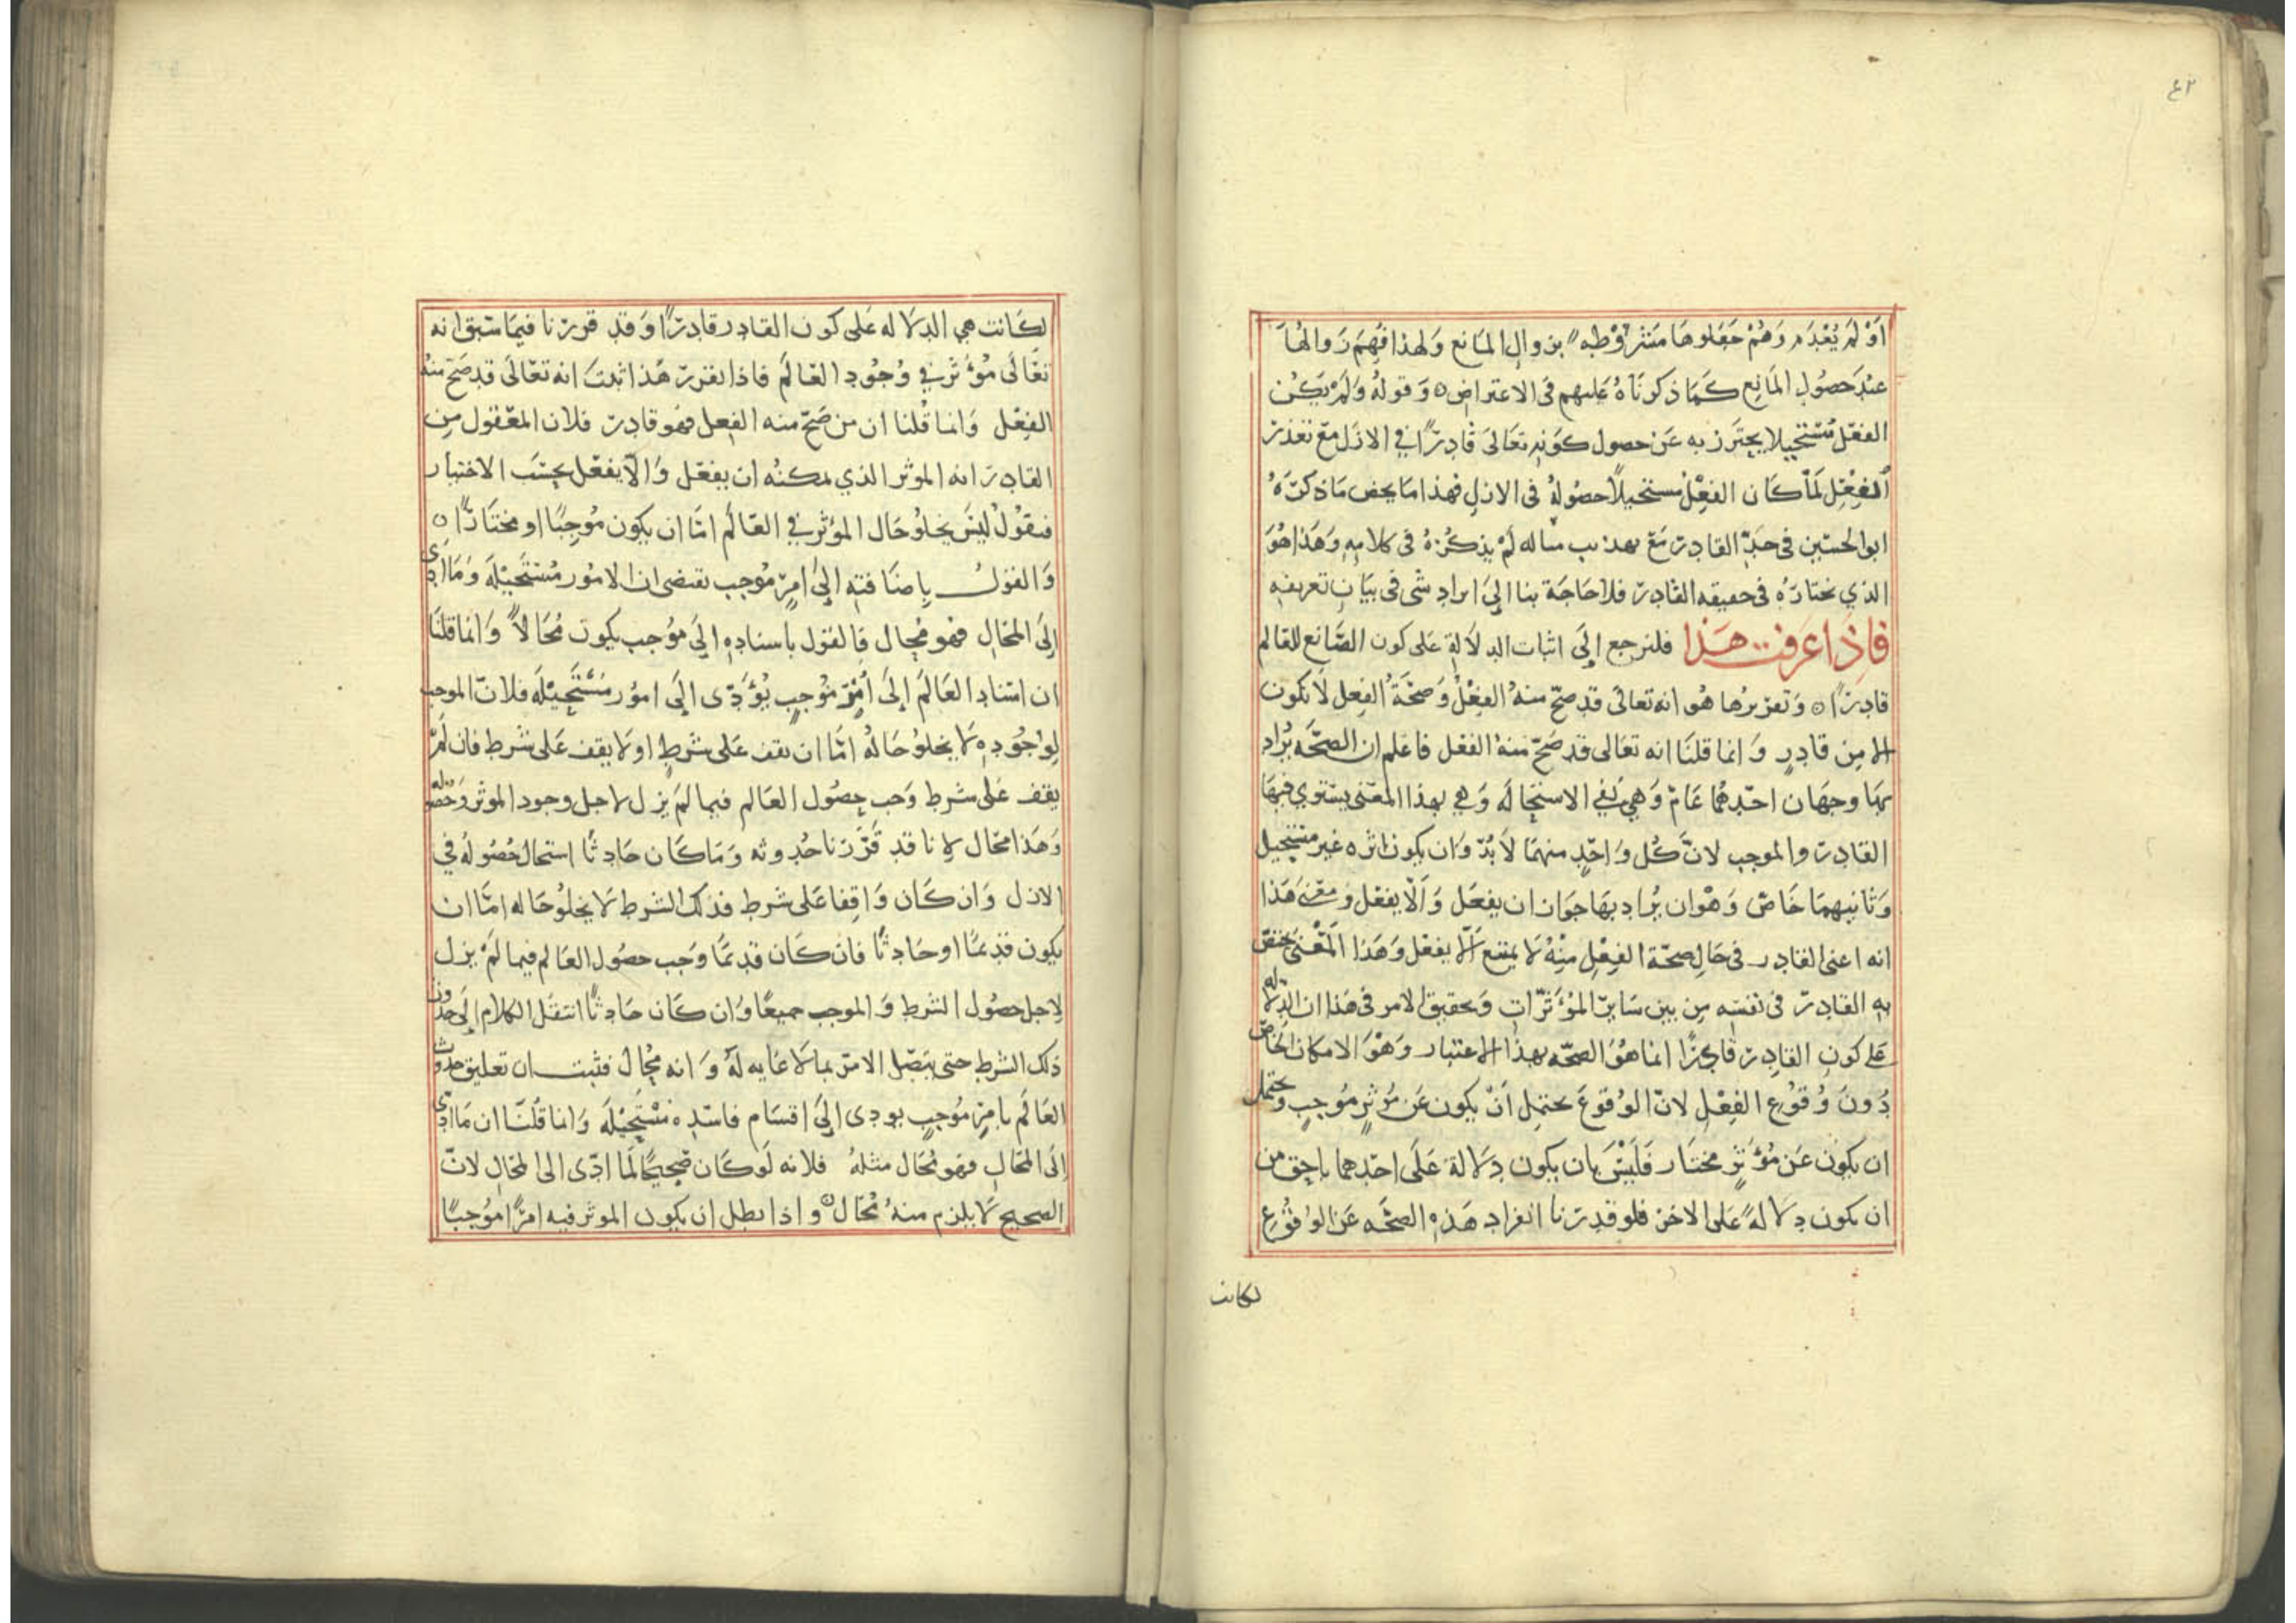 ٤٢
او لم يعدم وهم جعلوها مشروطه بزوال المانع ولهذا فهم زوالها
عند حصول المانع كما ذكرناه عليهم في الاعتراض ه وقوله ولم يكن
الفعل مستحيلا يحترز به عن حصول كونه تعالى قادرًا في الازل مع تعذر
الفعل لما كان الفعل مستحيلاً حصوله في الازل فهذا ما يخص ما ذكره
ابو الحسين في حد القادر مع تهذيب مناله لم يذكره في كلامه وهذا هو
الذي نختاره في حقيقه القادر فلا حاجة بنا الى ايراد شي في بيان تعريفه
فاذا عرفت هذا فلنرجع الى اثبات الدلالة على كون الصانع للعالم
قادرًا ه وتقريرها هو انه تعالى قد صح منه الفعل وصحة الفعل لا تكون
الا من قادر وانما قلنا انه تعالى قد صح منه الفعل فاعلم ان الصحه يراد
بها وجهان احدهما عام وهي نفي الاستحاله وهي بهذا المعنى يستوي فيها
القادر والموجب لان كل واحد منهما لا بد وان يكون اثره غير مستحيل
وثانيهما خاص وهو ان يراد بها جواز ان يفعل والا يفعل ومعنى هذا
انه اعني القادر في حال صحة الفعل منه لا يمتنع الا يفعل وهذا المعنى يختص
به القادر في نفسه من بين ساير المؤثرات وتحقيق الامر في هذا ان الدلاله
على كون القادر قادرًا انما هو الصحه بهذا الاعتبار وهو الامكان الخاص
دون وقوع الفعل لان الوقوع يحتمل ان يكون عن موثر موجب ويحتمل
ان يكون عن مؤثر مختار فليس بان يكون دلالة على احدهما باحق من
ان يكون دلالة على الاخر فلو قدرنا انفراد هذه الصحه عن الوقوع
لكانت
لكانت هي الدلاله على كون القادر قادرًا وقد قررنا فيما سبق انه
تعالى مؤثر في وجود العالم فاذا تقرر هذا ثبت انه تعالى قد صح منه
الفعل وانما قلنا ان من صح منه الفعل فهو قادر فلان المعقول من
القادر انه الموثر الذي يمكنه ان يفعل والا يفعل بحسب الاختيار
فنقول ليس يخلو حال المؤثر في العالم اما ان يكون موجبًا او مختارًا ه
والقول باضافته الى امر موجب يقتضي الامور مستحيله وما ادى
الى المحال فهو محال فالقول باسناده الى موجب يكون محالاً وانما قلنا
ان استناد العالم الى امر موجب يؤدى الى امور مستحيله فلان الموجب
لوجوده لا يخلو حاله اما ان يقف على شرط او لا يقف على شرط فان لم
يقف على شرط وجب حصول العالم فيما لم يزل لاجل وجود الموثر وحصوله
وهذا محال لانا قد قررنا حدوثه وما كان حادثًا استحال حصوله في
الازل وان كان واقفا على شرط فذلك الشرط لا يخلو حاله اما ان
يكون قديمًا او حادثًا فان كان قديمًا وجب حصول العالم فيما لم يزل
لاجل حصول الشرط والموجب جميعًا وان كان حادثًا انتقل الكلام الى حدوث
ذلك الشرط حتى يتصل الامر بما لا غايه له وانه محال فثبت ان تعليق حدوث
العالم بامر موجب يودى الى اقسام فاسده مستحيله وانما قلنا ان ما ادى
الى المحال فهو محال مثله فلانه لو كان صحيحًا لما ادى الى المحال لان
الصحيح لا يلزم منه محال ه واذا بطل ان يكون الموثر فيه امرًا موجبًا